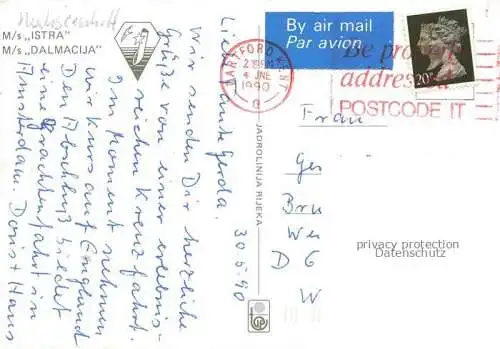 M/s „ISTRA"
M/s „DALMACIJA"
30.5.90
Liebe Tante Gerda.
Wir senden Dir herzliche
Grüße von einer erlebnis-
reichen Kreuzfahrt.
Im Moment nehmen
wir Kurs auf England
Den Abschluß bietet
eine Grachtenfahrt in
Amsterdam. Doris + Hans
JADROLINIJA RIJEKA
By air mail
Par avion
DARTFORD KENT
4 JNE
1990
Be
addressed
POSTCODE IT
20P
Frau
Ger
Bru
We
D 6
W
privacy protection
Datenschutz